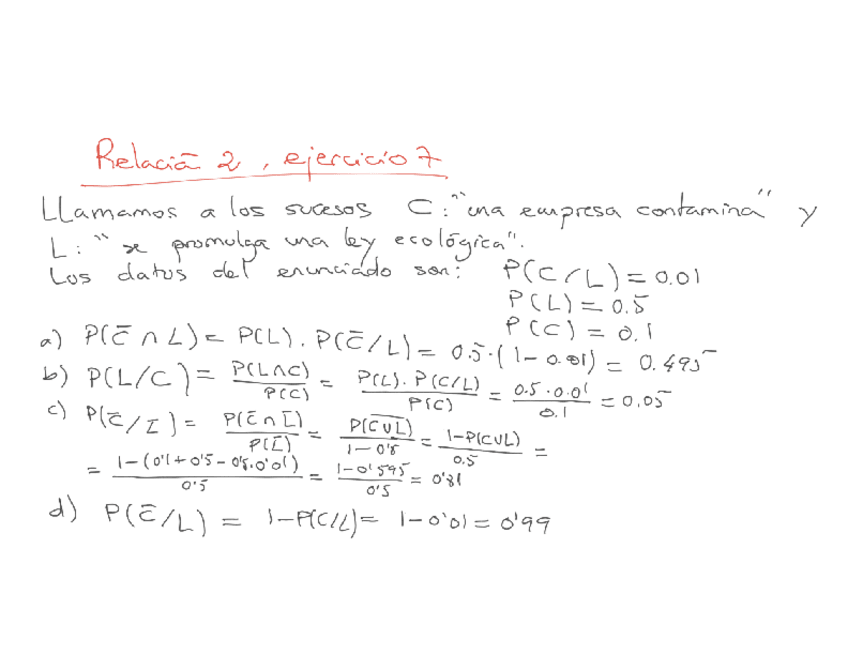 Relación 2, ejercicio 7
LLamamos a los sucesos C: "una empresa contamina" y
L: "se promulga una ley ecológica".
Los datos del enunciado son: P(C/L) = 0.01
P(L) = 0.5
P(C) = 0.1
a) P(C̄ ∩ L) = P(L) · P(C̄/L) = 0.5 · (1 - 0.01) = 0.495
b) P(L/C) = P(L∩C)/P(C) = P(L) · P(C/L)/P(C) = 0.5 · 0.01/0.1 = 0.05
c) P(C̄/L̄) = P(C̄ ∩ L̄)/P(L̄) = P(C̅U̅L̅)/1-0'5 = 1-P(CUL)/0.5 =
= 1-(0'1+0'5-0'5·0'01)/0'5 = 1-0'595/0'5 = 0'81
d) P(C̄/L) = 1-P(C/L) = 1-0'01 = 0'99